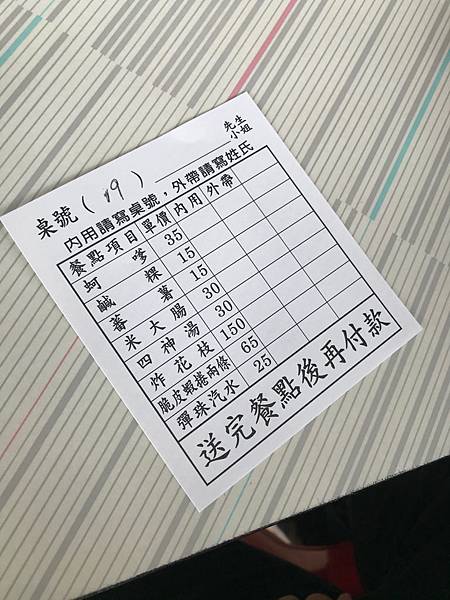 先生
小姐
桌號( 19 )
內用請寫桌號,外帶請寫姓氏
餐點項目 單價 內用 外帶
蚵嗲 35
鹹粿 15
蕃薯 15
米大腸 30
四神湯 30
炸花枝 150
脆皮蝦捲兩條 65
彈珠汽水 25
送完餐點後再付款